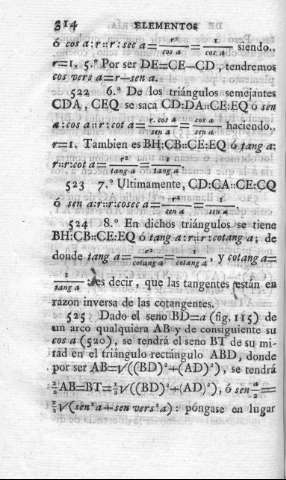 314 ELEMENTOS
ó cos a:r::r:sec a=r²/cos a=1/cos a siendo..
r=1. 5.º Por ser DE=CE—CD, tendremos
cos vers a=r—sen a.
522 6.º De los triángulos semejantes
CDA, CEQ se saca CD:DA::CE:EQ ó sen
a:cos a::r:cot a=r. cos a/sen a=cos a/sen a haciendo..
r=1. Tambien es BH:CB::CE:EQ ó tang a:
r::r:cot a=r²/tang a=1/tang a.
523 7.º Ultimamente, CD:CA::CE:CQ
ó sen a:r::r:cosec a=r²/sen a=1/sen a.
524 8.º En dichos triángulos se tiene
BH:CB::CE:EQ ó tang a:r::r:cotang a; de
donde tang a=r²/cotang a=1/cotang a, y cotang a=
1/tang a: es decir, que las tangentes están en
razon inversa de las cotangentes.
525 Dado el seno BD=a (fig. 115) de
un arco qualquiera AB y de consiguiente su
cos a (520), se tendrá el seno BT de su mi-
tad en el triángulo rectángulo ABD, donde
por ser AB=√((BD)²+(AD)²), se tendrá
½AB=BT=½√((BD)²+(AD)²), ó sen a/2=
½√(sen²a+sen vers²a): póngase en lugar